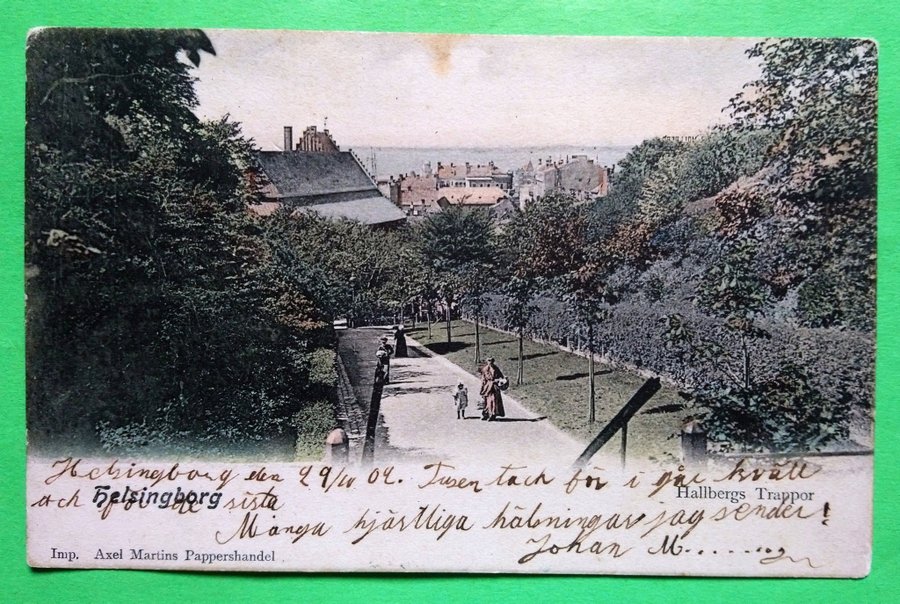 Helsingborg den 29/10 04. Tusen tack för i går kväll
och för de sista
Helsingborg
Hallbergs Trappor
Många hjärtliga hälsningar jag sender!
Johan M
Imp. Axel Martins Pappershandel